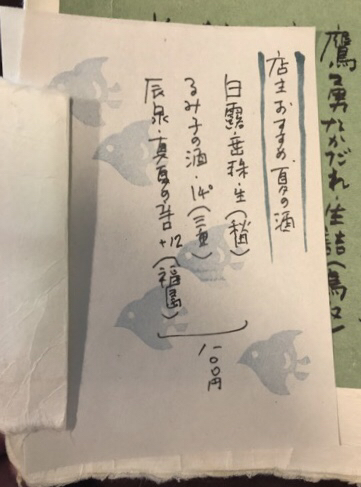 鷹勇なかだれ・生詰(鳥取)
店主おすすめ、夏の酒
白露垂珠・生(秋田)
るみ子の酒・14°(三重)
辰泉・真夏の辛+12(福島)
一〇〇円